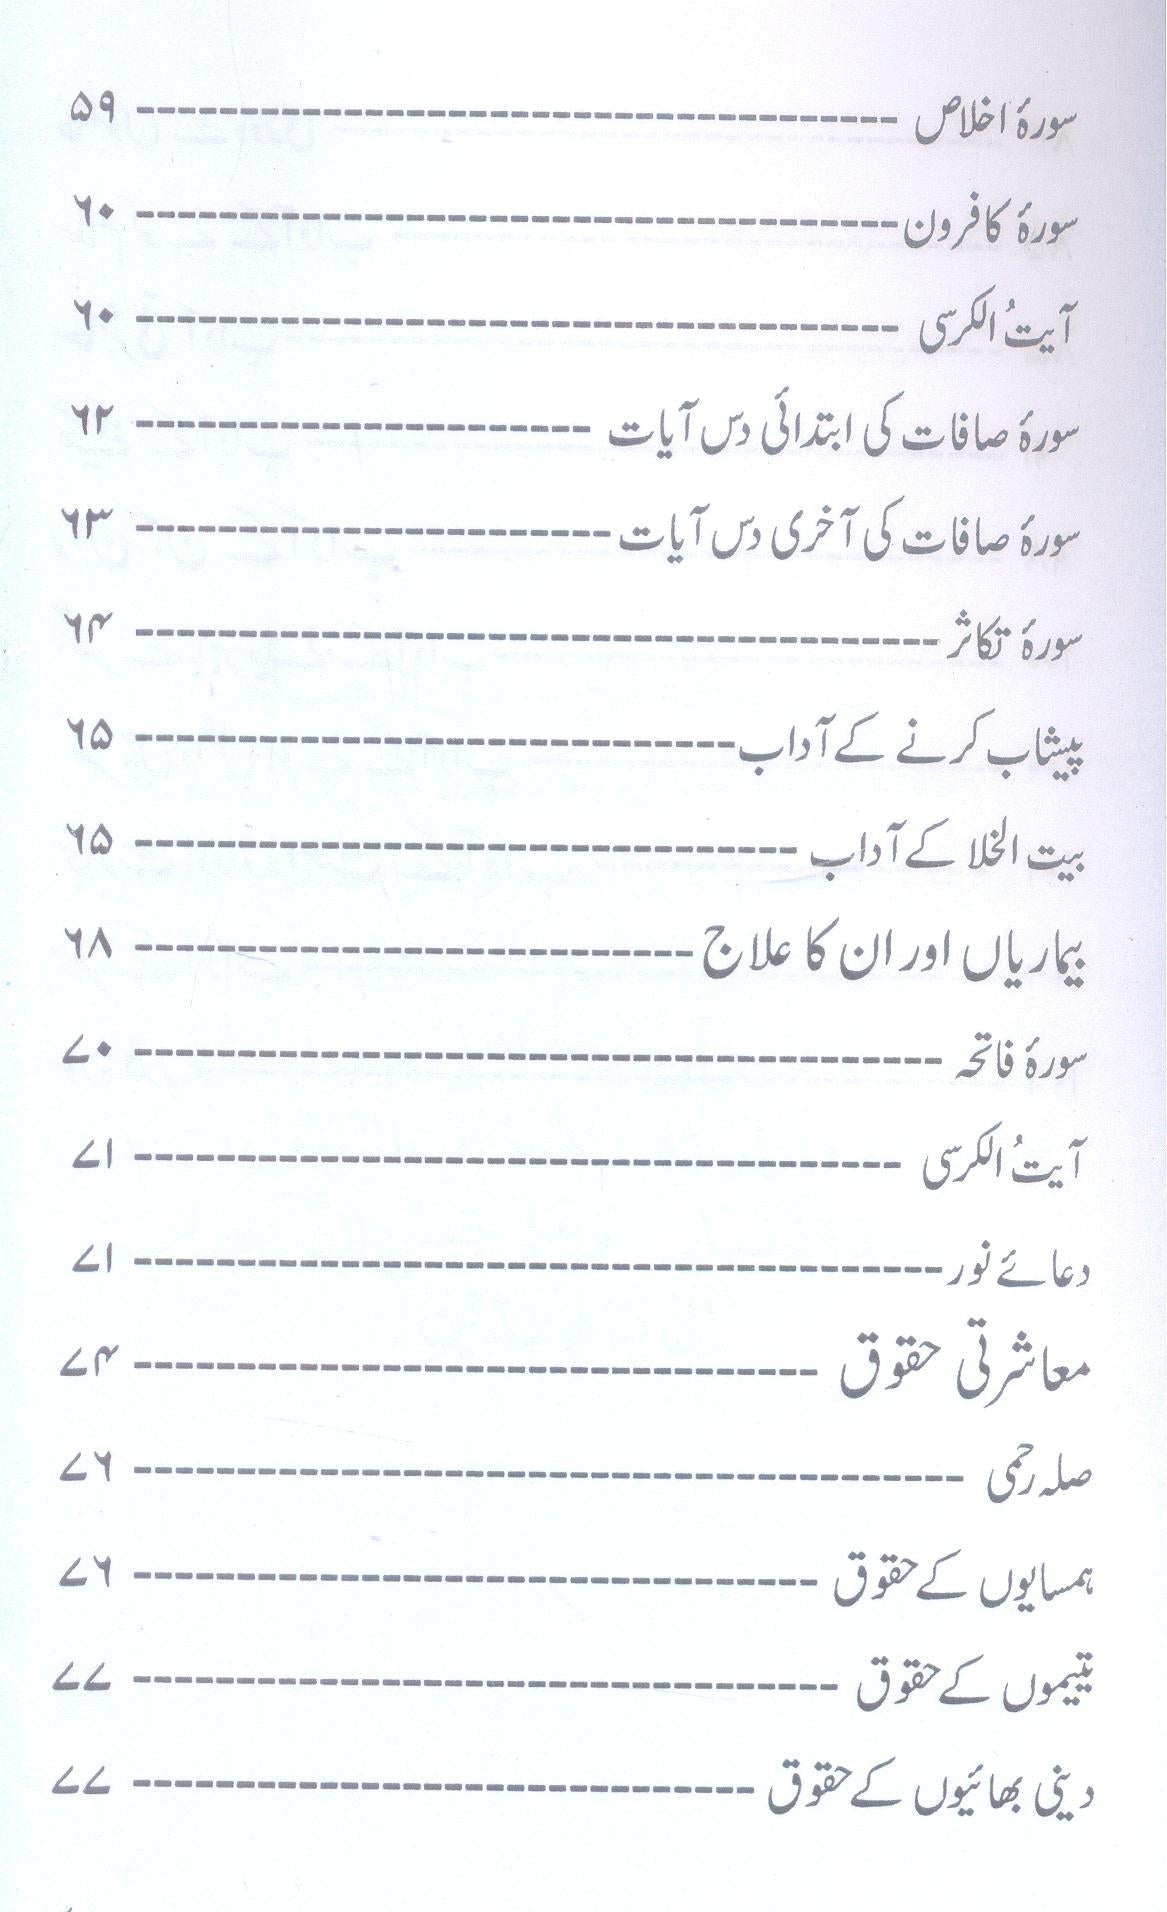 سورۂ اخلاص ------------------------------------- ۵۹
سورۂ کافرون ------------------------------------- ۶۰
آیتُ الکرسی ------------------------------------- ۶۰
سورۂ صافات کی ابتدائی دس آیات ---------------------- ۶۲
سورۂ صافات کی آخری دس آیات ----------------------- ۶۳
سورۂ تکاثر --------------------------------------- ۶۴
پیشاب کرنے کے آداب ----------------------------- ۶۵
بیت الخلا کے آداب -------------------------------- ۶۵
بیماریاں اور ان کا علاج --------------------------- ۶۸
سورۂ فاتحہ --------------------------------------- ۷۰
آیتُ الکرسی ------------------------------------- ۷۱
دعائے نور --------------------------------------- ۷۱
معاشرتی حقوق --------------------------------- ۷۴
صلہ رحمی ---------------------------------------- ۷۶
ہمسایوں کے حقوق --------------------------------- ۷۶
یتیموں کے حقوق ---------------------------------- ۷۷
دینی بھائیوں کے حقوق ------------------------------ ۷۷